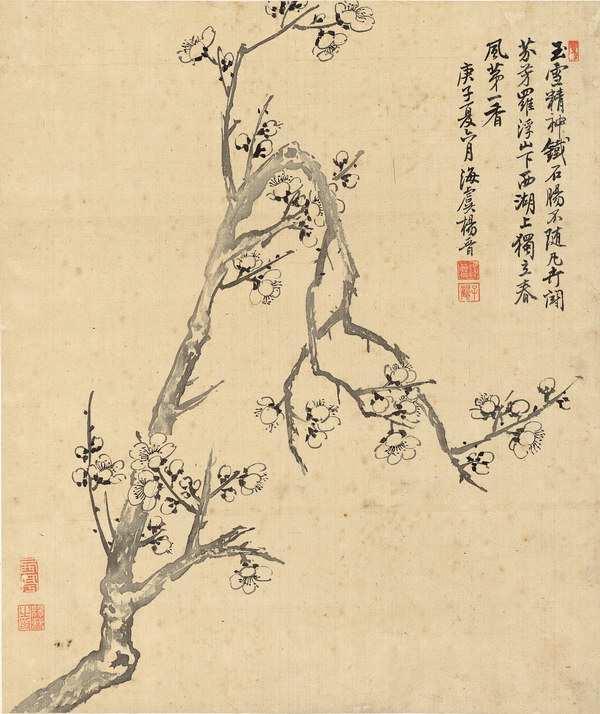 玉雪精神鐵石腸不隨凡卉鬪
芬芳羅浮山下西湖上獨立春
風第一香
庚子夏六月海虞楊晉